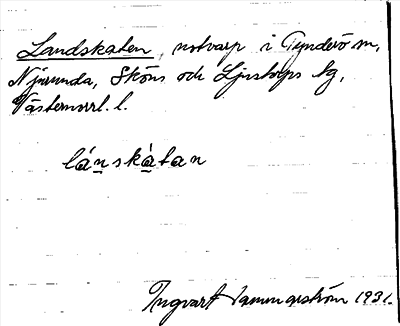 Landskaten, notvarp i Tynderö m,
Njurunda, Sköns och Ljustorps tg,
Västernorrl. l.
lánskàtan
Ingvart Hammarström 1931.